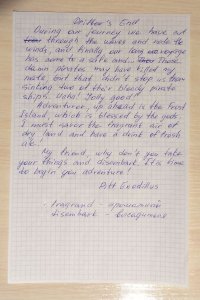 Drifter's End
During our journey we have cut
through the waves and rode the
winds, and finally our long voyage
has come to a safe end. Those
damn pirates may have killed my
mate but that didn't stop us from
sinking two of their bloody pirate
ships. Haha! Jolly good!
Adventurer, up ahead is the
Island, which is blessed by the gods.
I must savor the fragrant air of
dry land and have a drink of fresh
ale!
My friend, why don't you take
your things and disembark. It is time
to begin you adventure!
Pitt
- fragrand - ароматный
disembark - высадиться